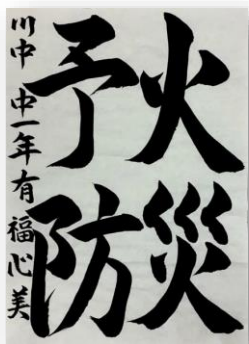 火災
予防
川中 中一年 有福心美